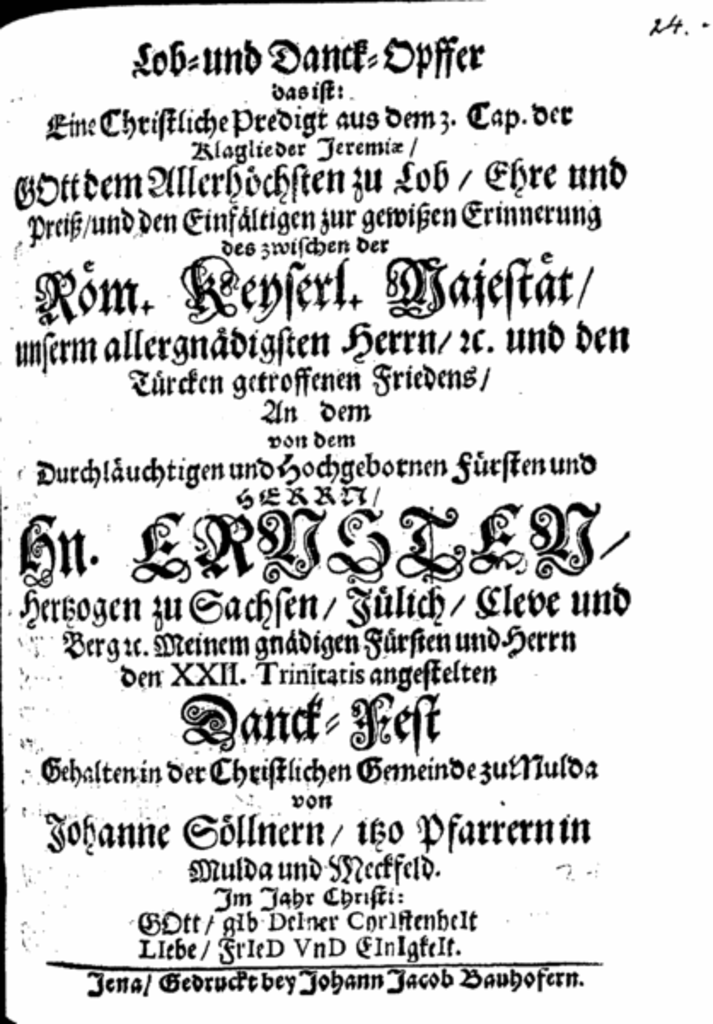 24.
Lob-und Danck-Opffer
das ist:
Eine Christliche Predigt aus dem 3. Cap. der
Klaglieder Jeremiæ/
GOtt dem Allerhöchsten zu Lob / Ehre und
Preiß/und den Einfältigen zur gewißen Erinnerung
des zwischen der
Röm. Keyserl. Majestät/
unserm allergnädigsten Herrn/ ꝛc. und den
Türcken getroffenen Friedens/
An dem
von dem
Durchläuchtigen und Hochgebornen Fürsten und
HERRN/
Hn. ERNSTEN/
Hertzogen zu Sachsen/ Jülich/ Cleve und
Berg ꝛc. Meinem gnädigen Fürsten und Herrn
den XXII. Trinitatis angestelten
Danck-Fest
Gehalten in der Christlichen Gemeinde zu Mulda
von
Johanne Söllnern/ itzo Pfarrern in
Mulda und Meckfeld.
Im Jahr Christi:
GOtt/ gIb DeIner ChrIstenheIt
LIebe/ FrIeD VnD EInIgkeIt.
Jena/ Gedruckt bey Johann Jacob Bauhofern.